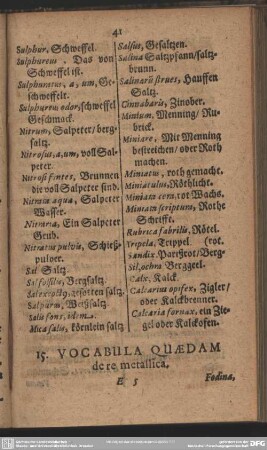 41
Sulphur, Schweffel.
Sulphureus, Das von
Schweffel ist.
Sulphuratus, a, um, Ge-
schweffelt.
Sulphureus odor, schweffel
Geschmack.
Nitrum, Salpeter / berg-
saltz.
Nitrosus, a, um, voll Sal-
peter.
Nitrosi fontes, Brunnen
die voll Salpeter sind.
Nitrata aqua, Salpeter
Wasser.
Nitraria, Ein Salpeter
Grub.
Nitratus pulvis, Schieß-
pulver.
Sal Saltz.
Sal fossile, Bergsaltz.
gesotten saltz
Weißsaltz
Salis fons, idem.
Mica salis, körnlein saltz
Salsus, Gesaltzen.
Salina Saltzpfann / saltz-
brunn.
Salinarū strues, Hauffen
Saltz.
Cinnabaris, Zinober.
Minium, Menning / Ru-
brick.
Miniare, Mit Menning
bestreichen / oder Roth
machen.
Miniatus, roth gemacht.
Miniaculus, Röthlicht.
Miniata cera, rot Wachs.
Miniata scriptura, Rothe
Schrifft.
Rubrica fabrilis, Rötel.
Tripela, Trippel. (rot.
Sandix, Parißrot / Berg-
Sil, ochra Berggeel.
Calx, Kalck.
Calcarius opifex, Zigler /
oder Kalckbrenner.
Calcaria fornax, ein Zie-
gel oder Kalckofen.
15. VOCABULA QUÆDAM
de re metallica.
E 5
Fodina,